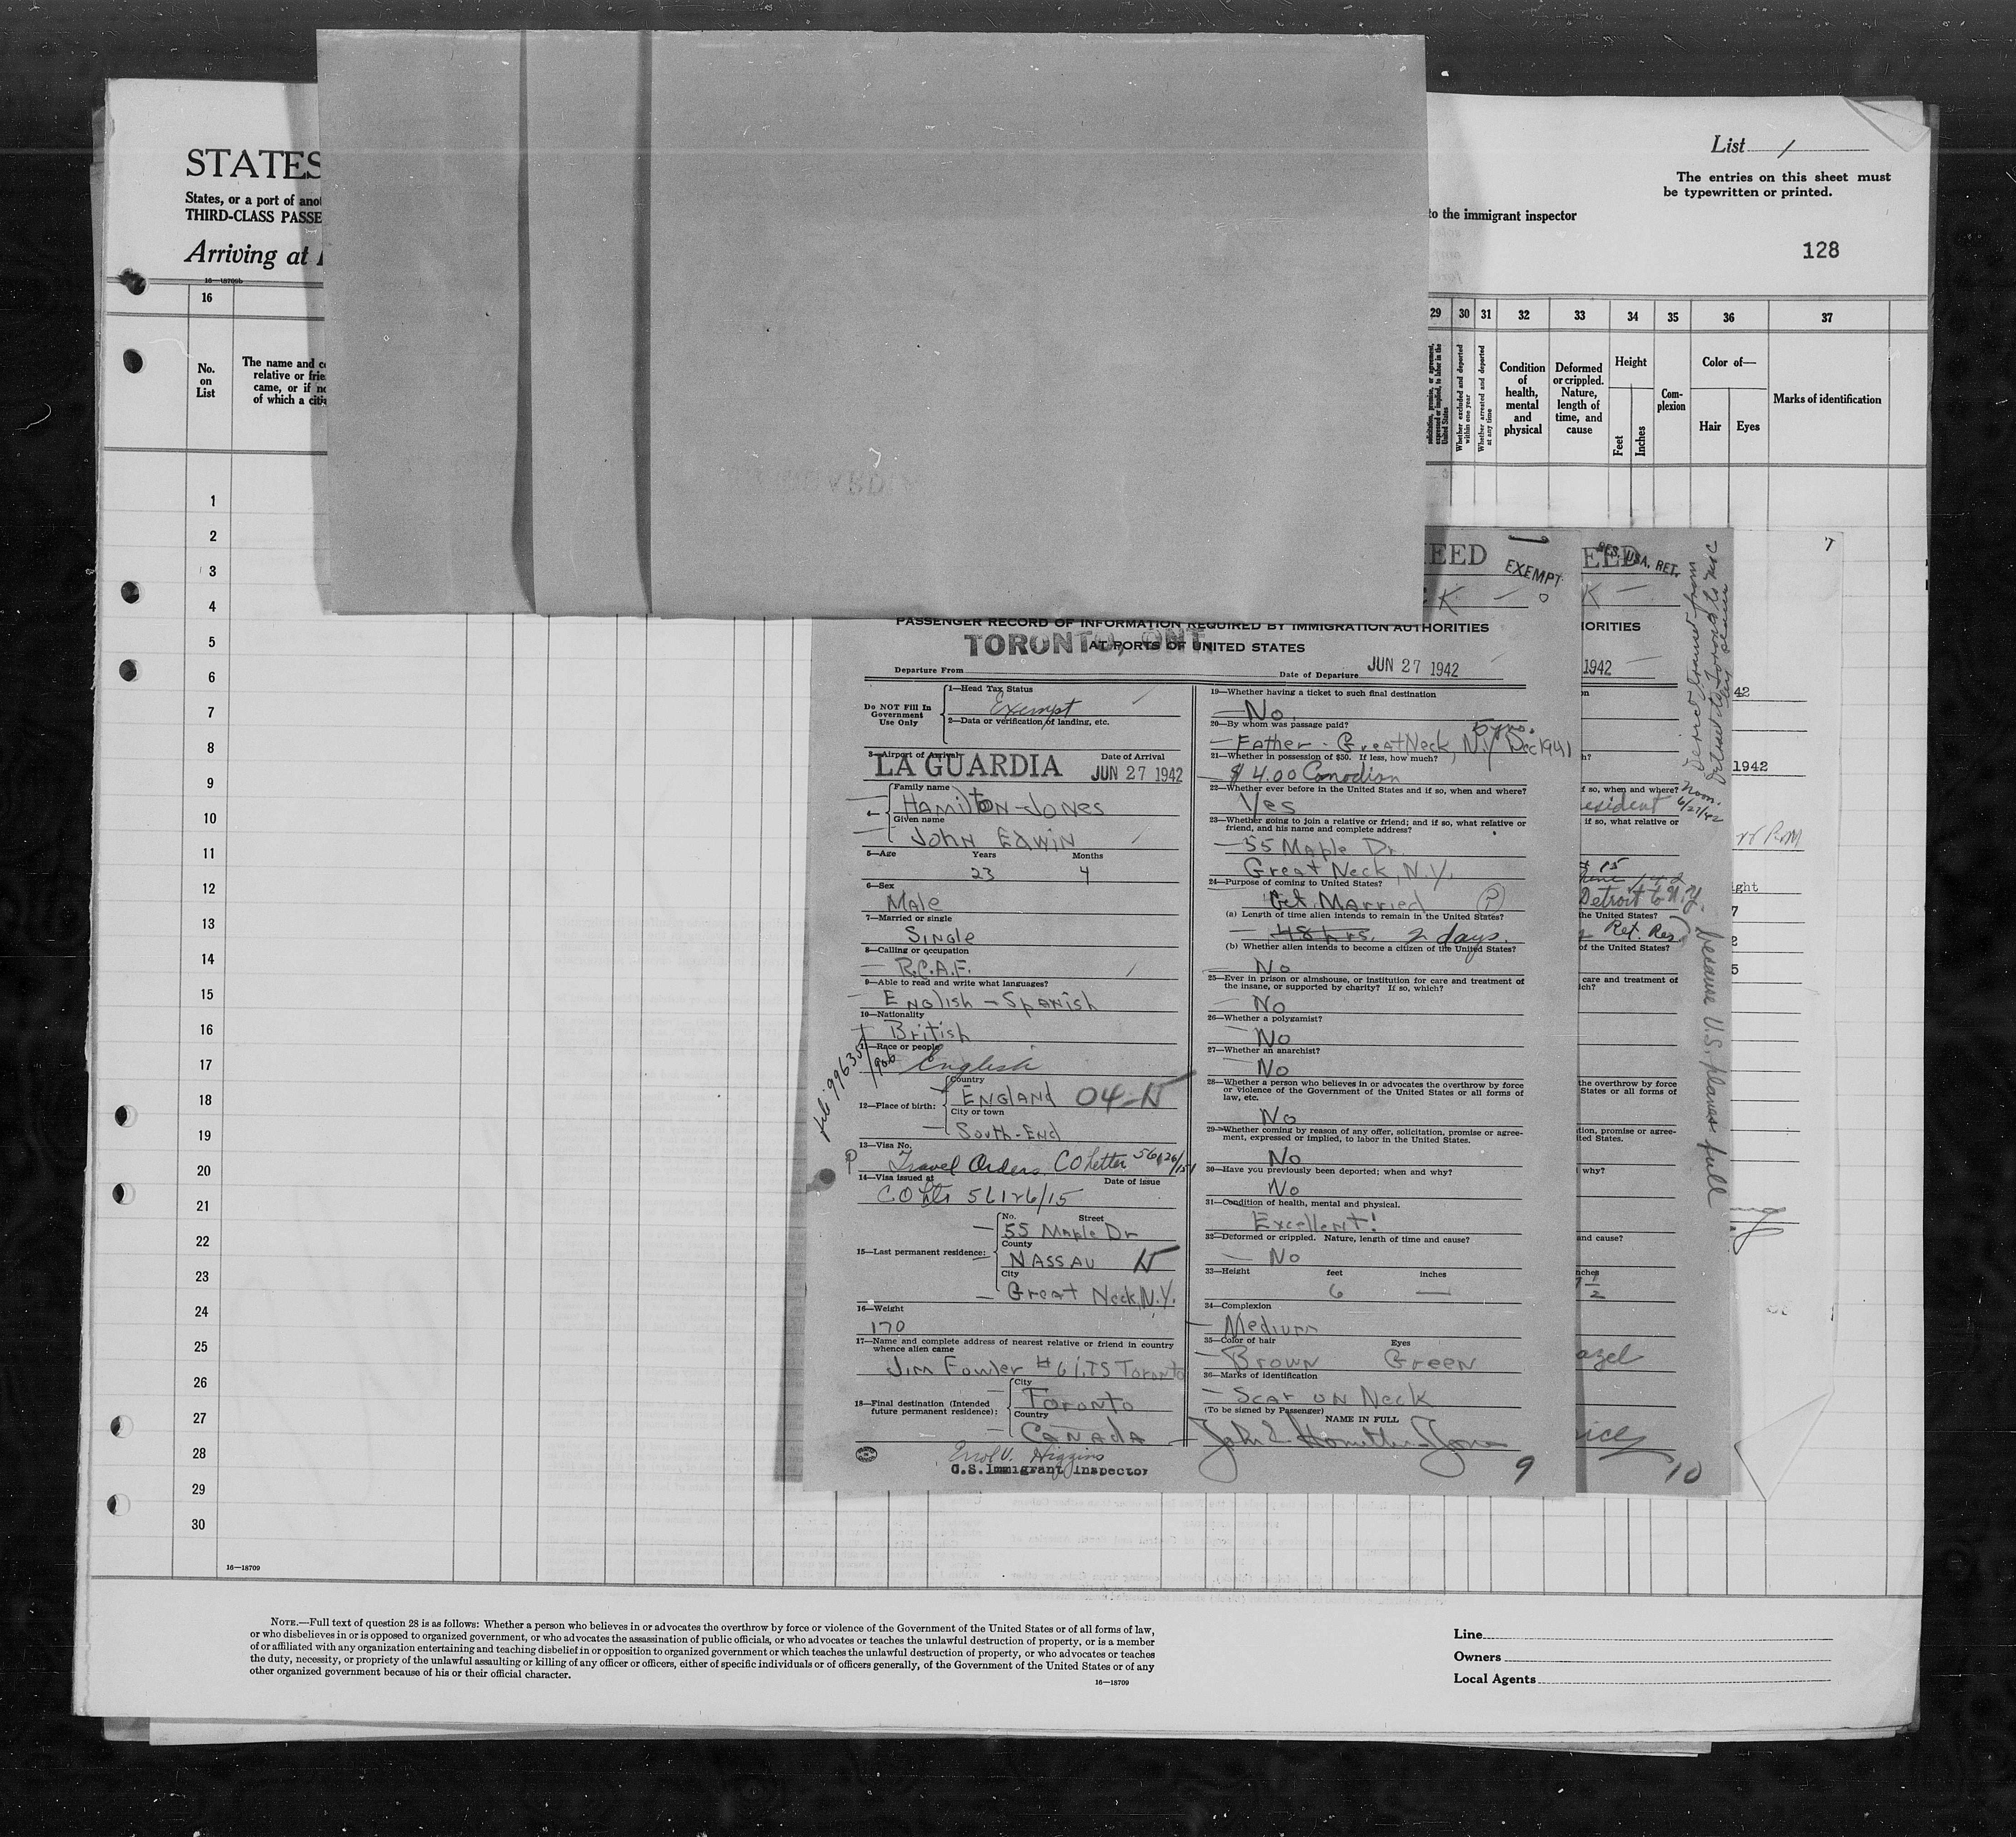 STATES
States, or a port of ano
THIRD-CLASS PASSE
Arriving at
16—18709b
List 1
The entries on this sheet must
be typewritten or printed.
to the immigrant inspector
128
16
No.
on
List
The name and c
relative or frie
came, or if n
of which a citi
29
30
31
32
33
34
35
36
37
solicitation, promise, or agreement,
expressed or implied, to labor in the
United States
Whether excluded and deported
within one year
Whether arrested and deported
at any time
Condition
of
health,
mental
and
physical
Deformed
or crippled.
Nature,
length of
time, and
cause
Height
Feet
Inches
Com-
plexion
Color of—
Hair
Eyes
Marks of identification
1
2
3
4
5
6
7
8
9
10
11
12
13
14
15
16
17
18
19
20
21
22
23
24
25
26
27
28
29
30
16—18709
EED
EXEMPT
K
PASSENGER RECORD OF INFORMATION REQUIRED BY IMMIGRATION AUTHORITIES
AT PORTS OF UNITED STATES
TORONTO, ONT
Departure From
Date of Departure JUN 27 1942
Do NOT Fill In
Government
Use Only
1—Head Tax Status
Exempt
2—Data or verification of landing, etc.
3—Airport of Arrival
Date of Arrival
LA GUARDIA JUN 27 1942
4—
Family name
Hamilton-Jones
Given name
John Edwin
5—Age Years Months
23 4
6—Sex
Male
7—Married or single
Single
8—Calling or occupation
R.C.A.F.
9—Able to read and write what languages?
English - Spanish
10—Nationality
British
11—Race or people
English
12—Place of birth:
Country
England 04-N
City or town
South-End
13—Visa No.
Travel Orders, CO Letter 56126/15
14—Visa issued at Date of issue
CO Ltr 56126/15
15—Last permanent residence:
No. Street
55 Maple Dr
County
Nassau N
City
Great Neck, N.Y.
16—Weight
170
17—Name and complete address of nearest relative or friend in country
whence alien came
Jim Fowler #6 I.T.S Toronto
18—Final destination (Intended
future permanent residence):
City
Toronto
Country
Canada
Errol V. Higgins
U.S. Immigrant Inspector
19—Whether having a ticket to such final destination
No.
20—By whom was passage paid?
5 yrs.
Father - Great Neck, N.Y. Dec 1941
21—Whether in possession of $50. If less, how much?
$4.00 Canadian
22—Whether ever before in the United States and if so, when and where?
Yes
23—Whether going to join a relative or friend; and if so, what relative or
friend, and his name and complete address?
55 Maple Dr.
Great Neck, N.Y.
24—Purpose of coming to United States?
Get Married
(a) Length of time alien intends to remain in the United States?
48 hrs. 2 days.
(b) Whether alien intends to become a citizen of the United States?
No
25—Ever in prison or almshouse, or institution for care and treatment of
the insane, or supported by charity? If so, which?
No
26—Whether a polygamist?
No
27—Whether an anarchist?
No
28—Whether a person who believes in or advocates the overthrow by force
or violence of the Government of the United States or all forms of
law, etc.
No
29—Whether coming by reason of any offer, solicitation, promise or agree-
ment, expressed or implied, to labor in the United States.
No
30—Have you previously been deported; when and why?
No
31—Condition of health, mental and physical.
Excellent!
32—Deformed or crippled. Nature, length of time and cause?
No
33—Height feet inches
6 —
34—Complexion
Medium
35—Color of hair Eyes
Brown Green
36—Marks of identification
Scar on Neck
(To be signed by Passenger)
NAME IN FULL
John E Hamilton-Jones
9
EED
RES. USA. RET.
K
ORITIES
1942
f so, when and where?
esident
if so, what relative or
Detroit to N.Y.
the United States?
Ret. Res
of the United States?
care and treatment of
ich?
the overthrow by force
States or all forms of
tion, promise or agree-
ited States.
why?
and cause?
nches
1/2
azel
10
because U.S. planes full
42
1942
ight
7
2
5
NOTE.—Full text of question 28 is as follows: Whether a person who believes in or advocates the overthrow by force or violence of the Government of the United States or of all forms of law,
or who disbelieves in or is opposed to organized government, or who advocates the assassination of public officials, or who advocates or teaches the unlawful destruction of property, or is a member
of or affiliated with any organization entertaining and teaching disbelief in or opposition to organized government or which teaches the unlawful destruction of property, or who advocates or teaches
the duty, necessity, or propriety of the unlawful assaulting or killing of any officer or officers, either of specific individuals or of officers generally, of the Government of the United States or of any
other organized government because of his or their official character.
16—18709
Line
Owners
Local Agents